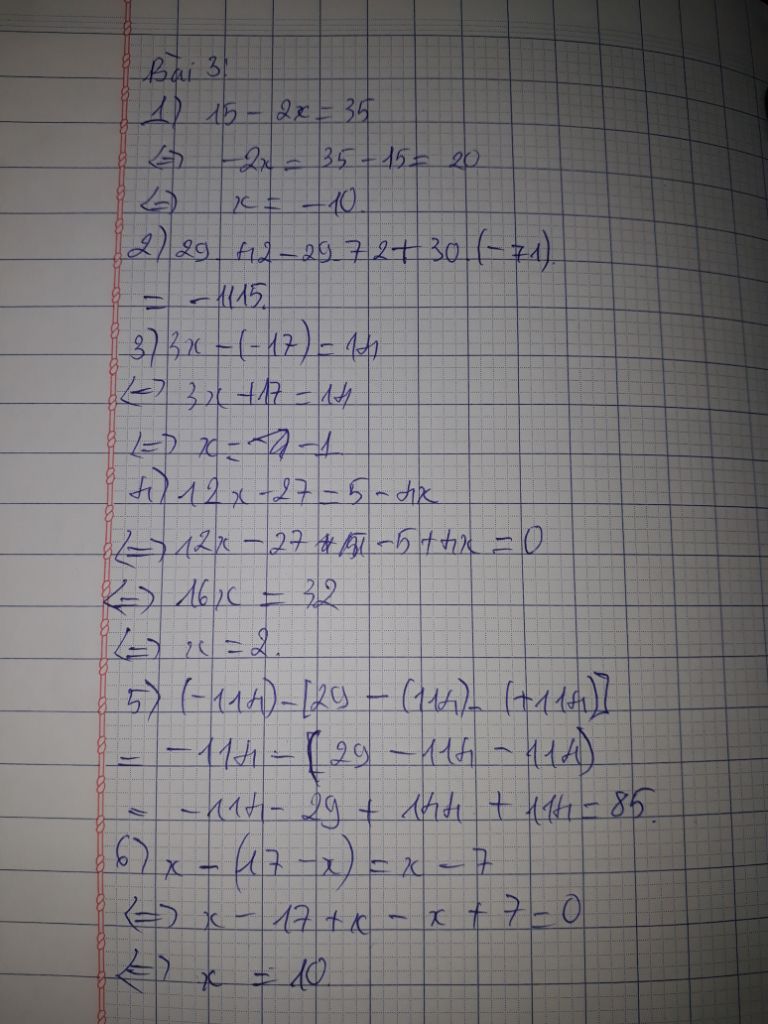 Bài 3:
1) 15 - 2x = 35
<=> -2x = 35 - 15 = 20
<=> x = -10.
2) 29 . 42 - 29 . 72 + 30 . (-71).
= -1115.
3) 3x - (-17) = 14
<=> 3x + 17 = 14
<=> x = -1
4) 12x - 27 = 5 - 4x
<=> 12x - 27 - 5 + 4x = 0
<=> 16x = 32
<=> x = 2.
5) (-114) - [29 - (114) - (+114)]
= -114 - (29 - 114 - 114)
= -114 - 29 + 144 + 114 = 85.
6) x - (17 - x) = x - 7
<=> x - 17 + x - x + 7 = 0
<=> x = 10